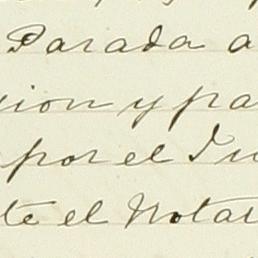 Parada a
sion y pa
por el Ju
te el Notar